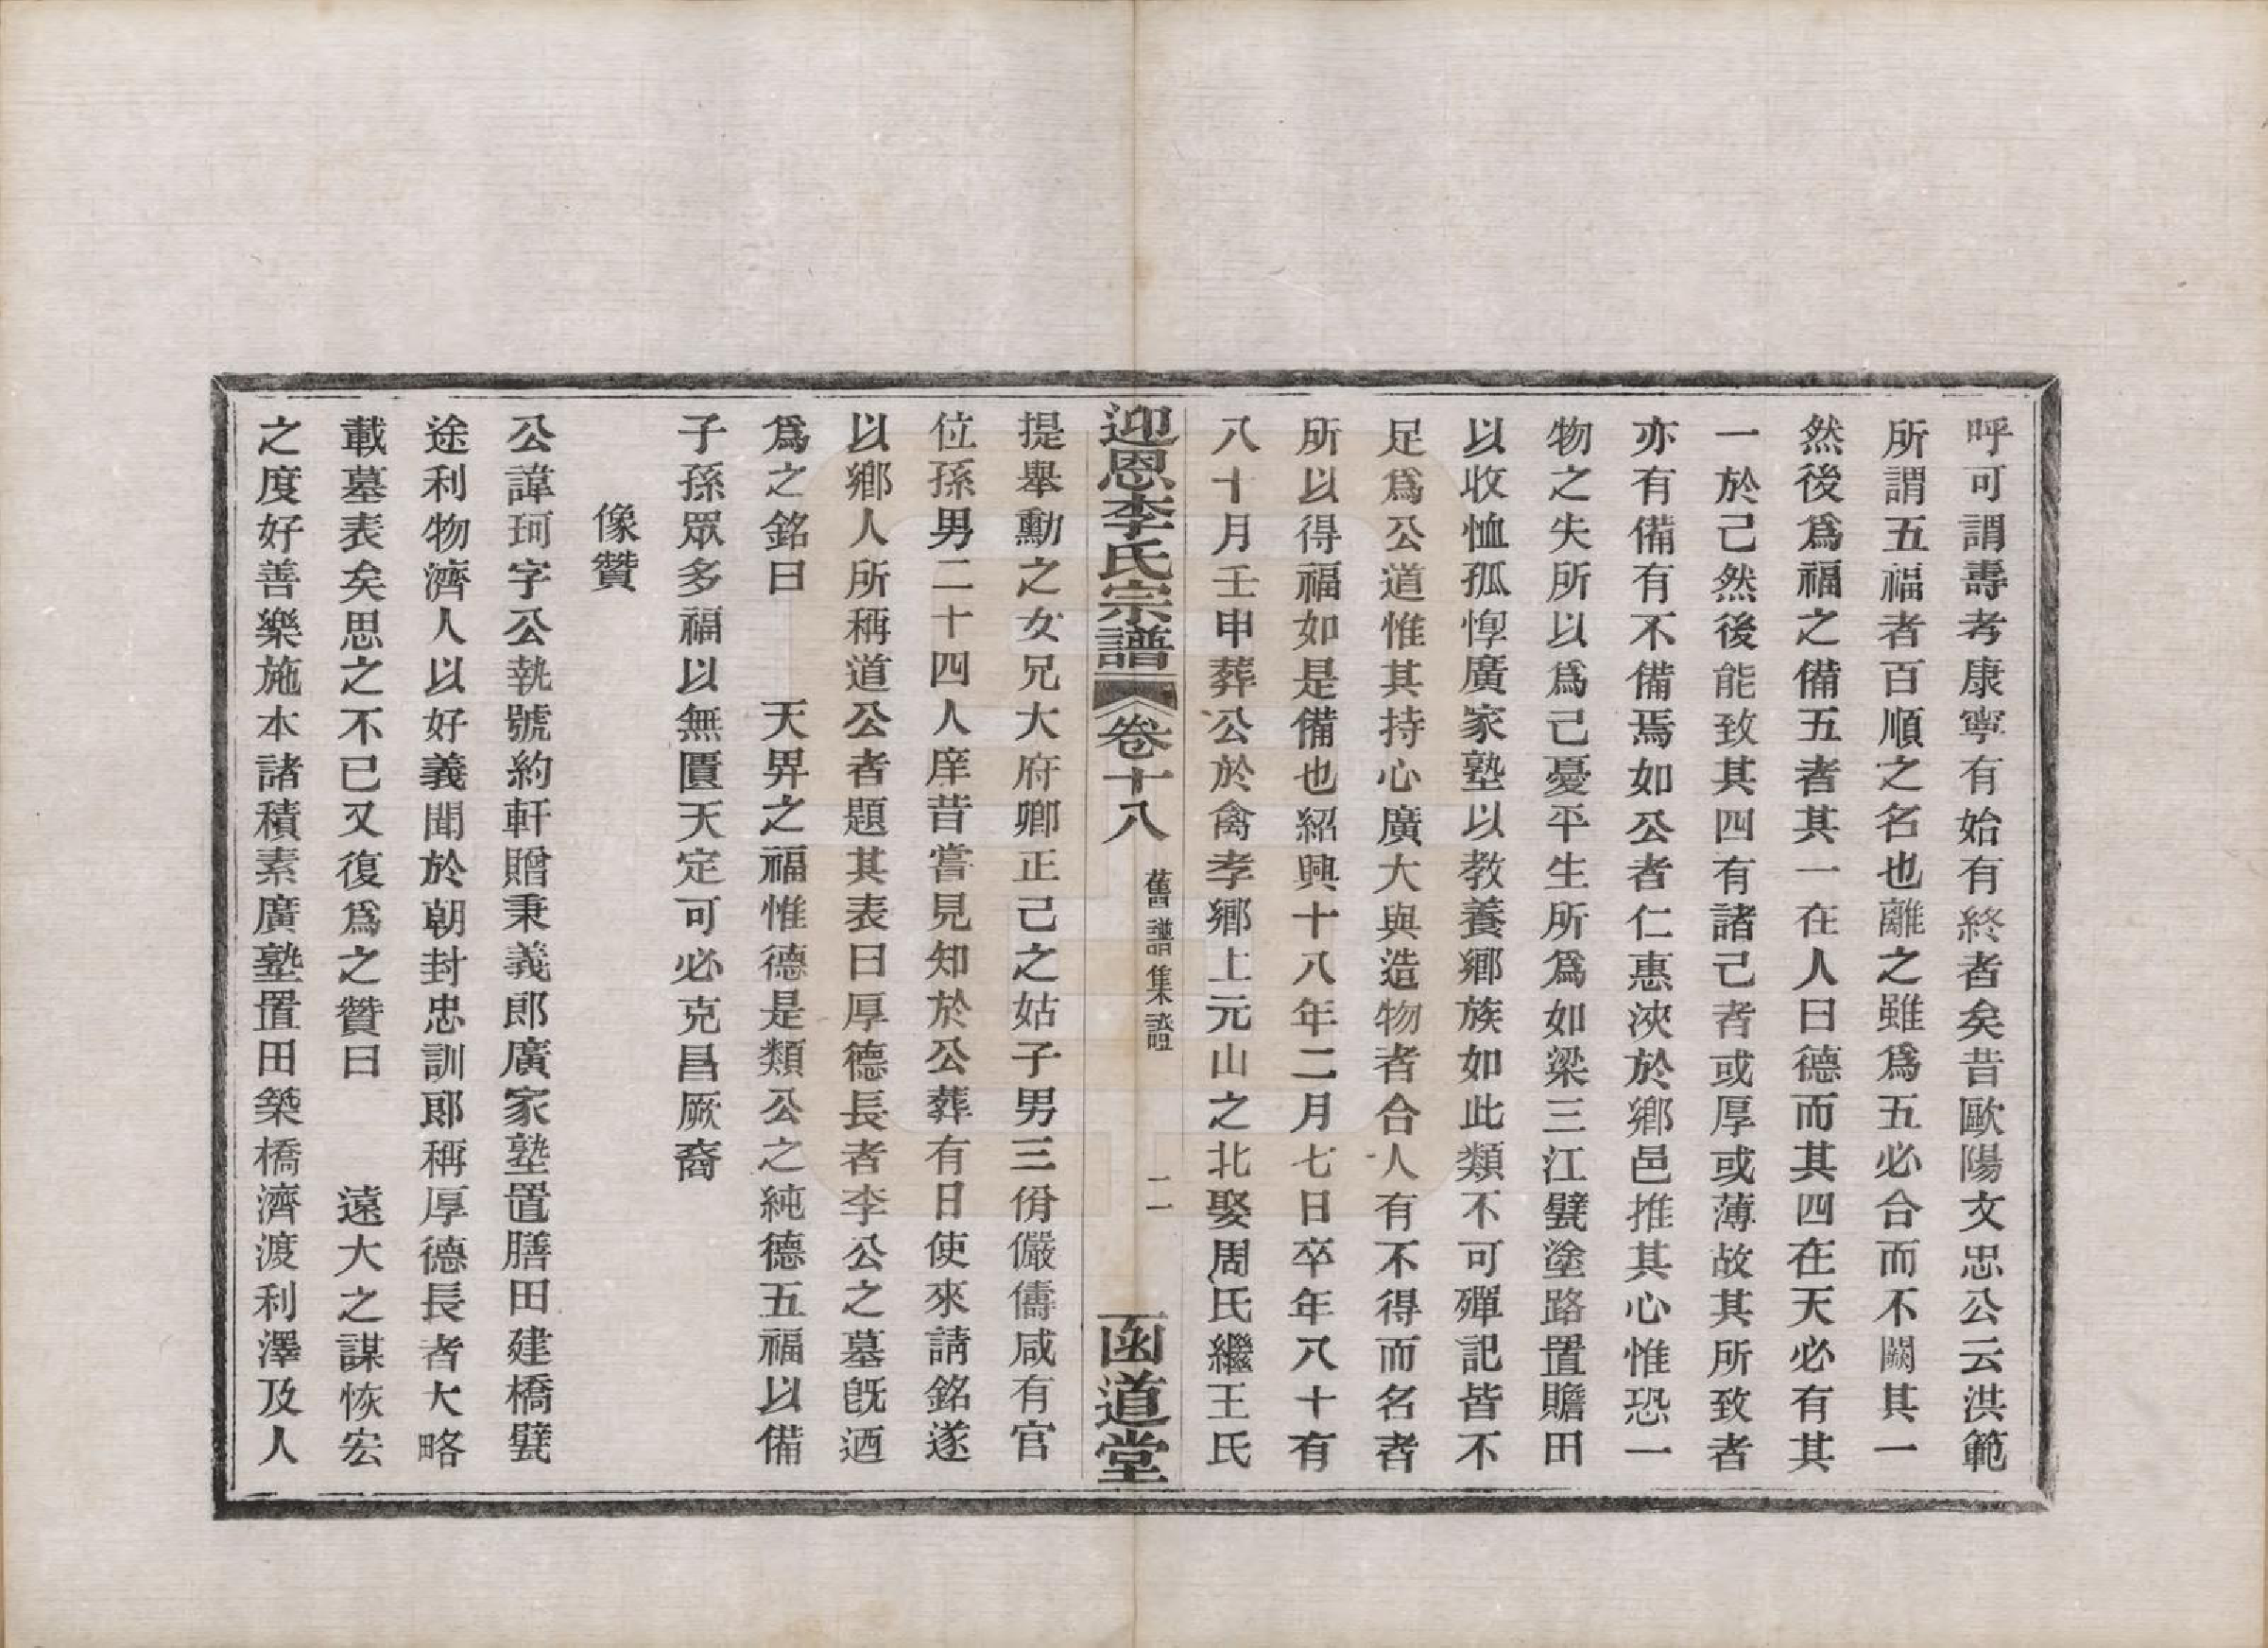 呼可謂壽考康寧有始有終者矣昔歐陽文忠公云洪範
所謂五福者百順之名也離之雖爲五必合而不闕其一
然後爲福之備五者其一在人曰德而其四在天必有其
一於己然後能致其四有諸己者或厚或薄故其所致者
亦有備有不備焉如公者仁惠浹於鄉邑推其心惟恐一
物之失所以爲己憂平生所爲如梁三江甃塗路置贍田
以收恤孤惸廣家塾以教養鄉族如此類不可殫記皆不
足爲公道惟其持心廣大與造物者合人有不得而名者
所以得福如是備也紹興十八年二月七日卒年八十有
八十月壬申葬公於禽孝鄉上元山之北娶周氏繼王氏
迎恩李氏宗譜 卷十八 舊譜集證 二 函道堂
提舉勳之女兄大府卿正己之姑子男三份儼儔咸有官
位孫男二十四人庠昔嘗見知於公葬有日使來請銘遂
以鄉人所稱道公者題其表曰厚德長者李公之墓旣迺
爲之銘曰 天畀之福惟德是類公之純德五福以備
子孫眾多福以無匱天定可必克昌厥裔
像贊
公諱珂字公執號約軒贈秉義郎廣家塾置膳田建橋甃
途利物濟人以好義聞於朝封忠訓郎稱厚德長者大略
載墓表矣思之不已又復爲之贊曰 遠大之謀恢宏
之度好善樂施本諸積素廣塾置田築橋濟渡利澤及人